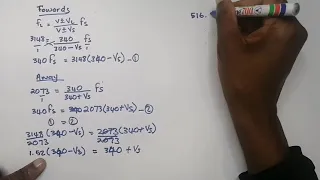 Towards
fL = V ± VL / V ± VS fs
3148 / 1 = 340 / 340 - Vs fs / 1
340 fs = 3148 (340 - Vs) - ①
Away
2073 / 1 = 340 / 340 + Vs fs
340 fs = 2073 (340 + Vs) - ②
① = ②
3148 (340 - Vs) / 2073 = 2073 (340 + Vs) / 2073
1.52 (340 - Vs) = 340 + Vs
516.